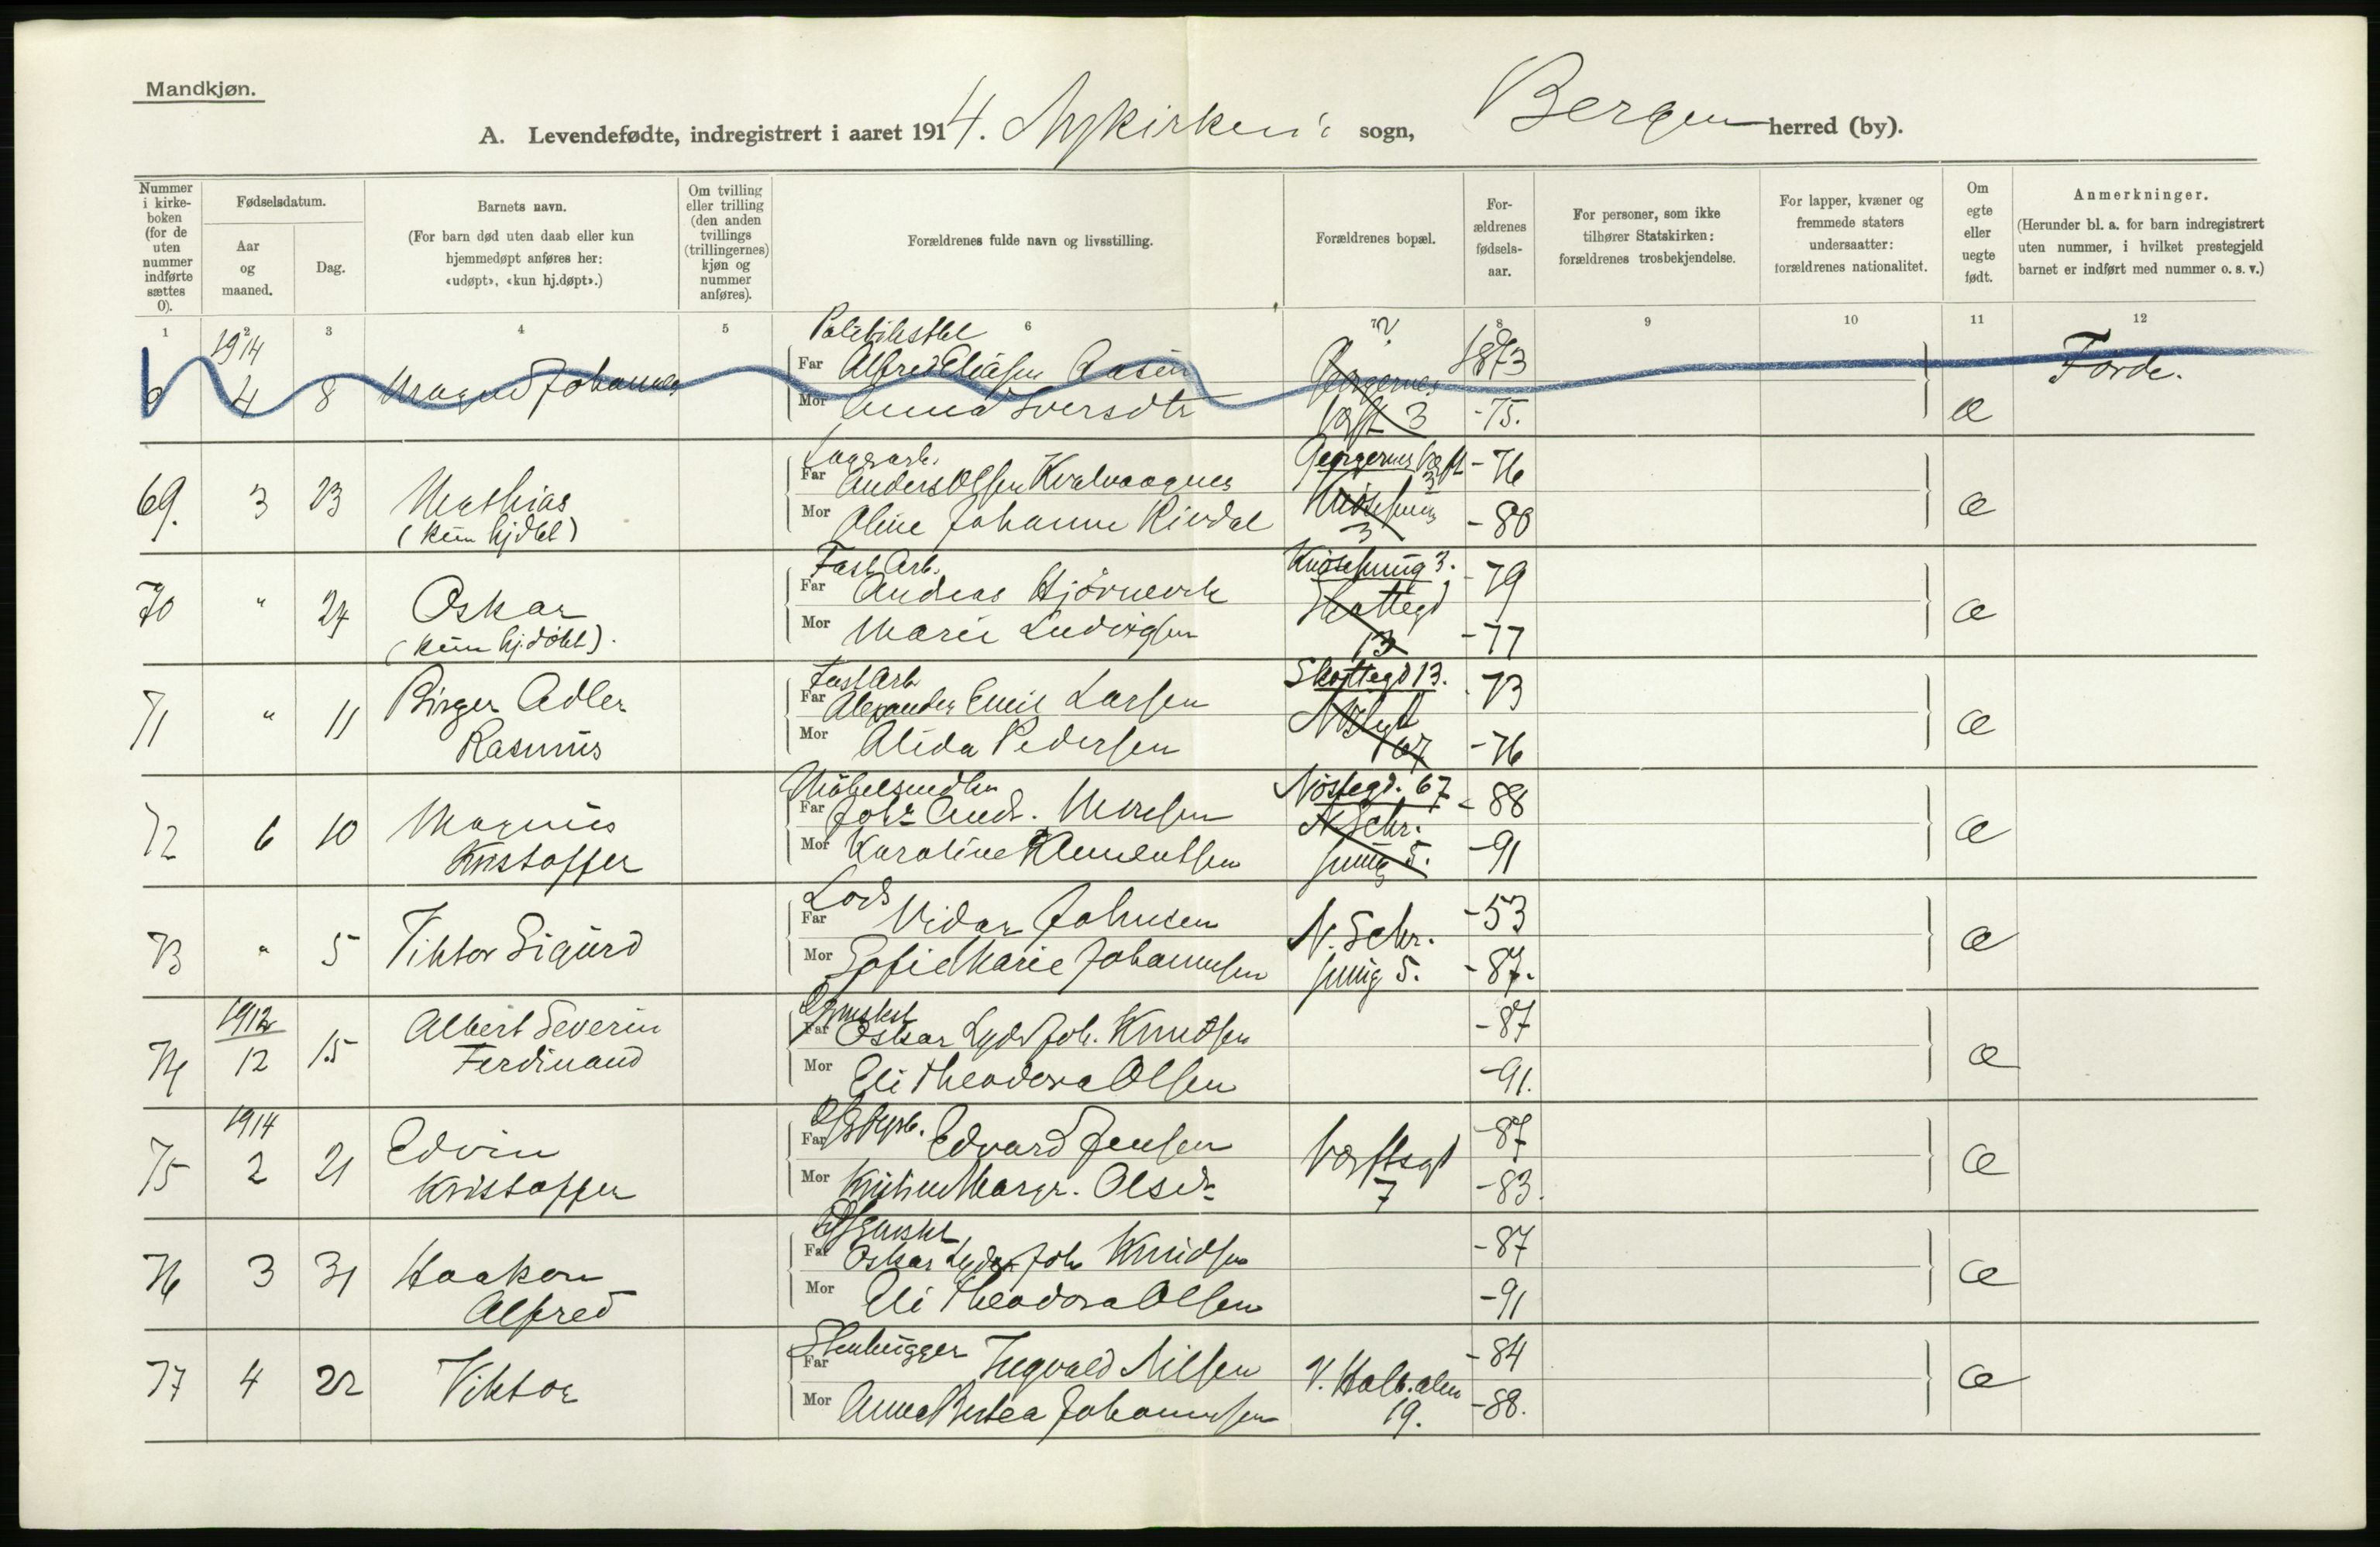 Mandkjøn.
A. Levendefødte, indregistrert i aaret 1914. Nykirken's sogn, Bergen herred (by).
Nummer i kirkeboken (for de uten nummer indførte sættes 0).
Fødselsdatum.
Aar og maaned.
Dag.
Barnets navn.
(For barn død uten daab eller kun hjemmedøpt anføres her: «udøpt», «kun hj.døpt».)
Om tvilling eller trilling (den anden tvillings (trillingernes) kjøn og nummer anføres).
Forældrenes fulde navn og livsstilling.
Forældrenes bopæl.
Forældrenes fødselsaar.
For personer, som ikke tilhører Statskirken: forældrenes trosbekjendelse.
For lapper, kvæner og fremmede staters undersaatter: forældrenes nationalitet.
Om egte eller uegte født.
Anmerkninger.
(Herunder bl. a. for barn indregistrert uten nummer, i hvilket prestegjeld barnet er indført med nummer o. s. v.)
1 2 3 4 5 6 7 8 9 10 11 12
1914 ?
0 4 8 Magnus Johannes
Far Alfred Eliasen Aasen Georgernes 1873 Førde.
Mor Anna Iversdtr Verft 3 -75. æ
69. 3 23 Mathias
(kun hjdbt)
Far Anders Olsen Kvalvaagnes Georgernes Verft 3 -76
Mor Oline Johanne Rivdal Knøsesmug 3 -80 æ
70 " 24 Oskar
(kun hj.døbt).
Fast Arb.
Far Andreas Hjörnevik Knøsesmug 3. -79
Mor Marie Ludvigsen Skottegd 13 -77 æ
71 " 11 Birger Adler
Rasmus
Fast Arb
Far Alexander Emil Larsen Skottegd 13. -73
Mor Alida Pedersen Nöstegt 67 -76 æ
72 6 10 Magnus
Kristoffer
Far Johs Andr. Monsen Nöstegd. 67 -88
Mor Karoline Klementsen N. Schr. smug 5. -91 æ
73 " 5 Viktor Sigurd
Lods
Far Vidar Johnsen N. Schr. -53
Mor Sofie Marie Johannesen smug 5. -87. æ
1912
74 12 15 Albert Severin
Ferdinand
Far Oskar Lyder Joh. Knudsen -87
Mor Eli Theodora Olsen -91. æ
1914
75 2 21 Edvin
Kristoffer
Far Edvard Jensen Verftsgt -87
Mor Margr. Olsen 7 -83. æ
76 3 31 Haakon
Alfred
Far Oskar Lyder Joh Knudsen -87
Mor Eli Theodora Olsen -91 æ
77 4 22 Viktor
Stenhugger
Far Ingvald Nilsen V. Holb.alm -84
Mor Anna Bertea Johannesen 19. -88. æ